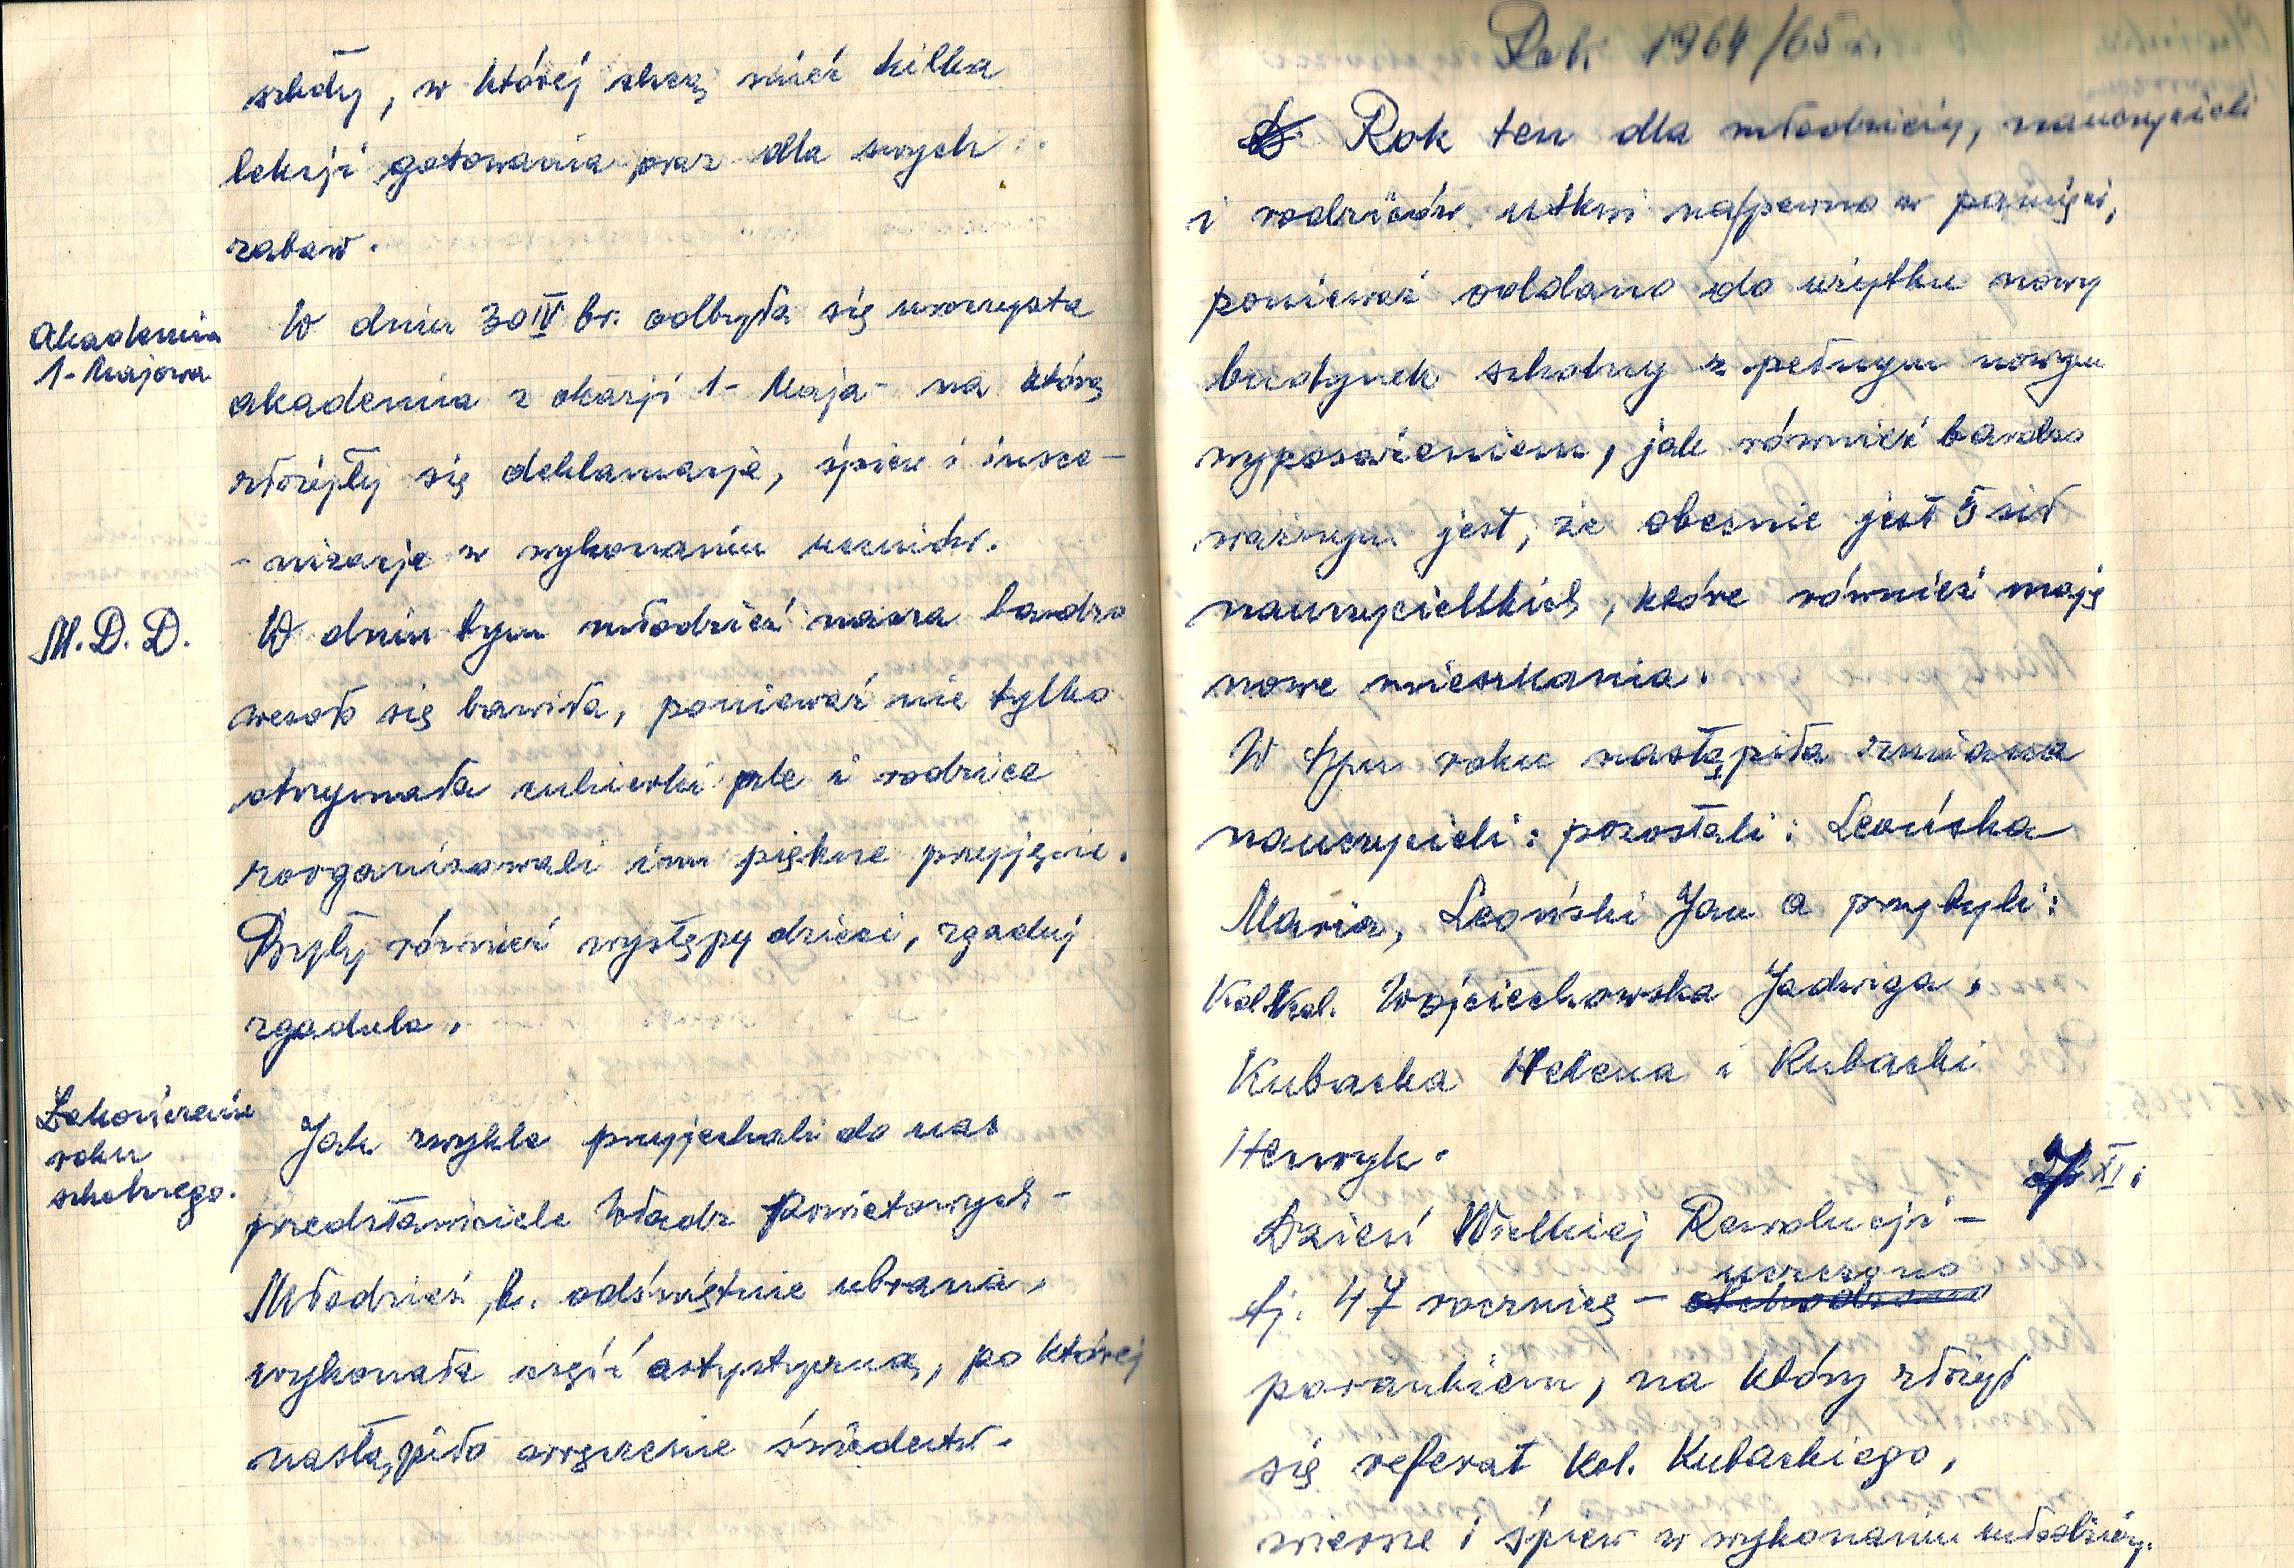 szkoły, w której chcą mieć kilka
lekcji gotowania oraz dla swych
zabaw.
Akademia
1-Majowa
W dniu 30 IV br. odbyła się uroczysta
akademia z okazji 1-Maja- na którą
złożyły się deklamacje, śpiew i insce-
-nizacje w wykonaniu uczniów.
M.D.D.
W dniu tym młodzież nasza bardzo
wesoło się bawiła, ponieważ nie tylko
otrzymała cukierki ale i rodzice
zorganizowali im piękne przyjęcie.
Były również występy dzieci, zgaduj
zgadula.
Zakończenie
roku
szkolnego.
Jak zwykle przyjechali do nas
przedstawiciele Władz Powiatowych-
Młodzież, b. odświętnie ubrana,
wykonała część artystyczną, po której
nastąpiło wręczenie świadectw.
Rok 1964/65 r.
Rok ten dla młodzieży, nauczycieli
i rodziców utkwi na/pewno w pamięci,
ponieważ oddano do użytku nowy
budynek szkolny z pełnym nowym
wyposażeniem, jak również bardzo
ważnym jest, że obecnie jest 5 sił
nauczycielskich, które również mają
nowe mieszkania.
W tym roku nastąpiła zmiana
nauczycieli: pozostali: Leońska
Maria, Leoński Jan a przybyli:
Kol.Kol. Wojciechowska Jadwiga,
Kubacka Helena i Kubacki
Henryk.
7 XI.
Dzień Wielkiej Rewolucji-
uczczono
tj. 47 rocznicę - obchodzono
porankiem, na który złożył
się referat Kol. Kubackiego,
wiersze i śpiew w wykonaniu młodzieży.